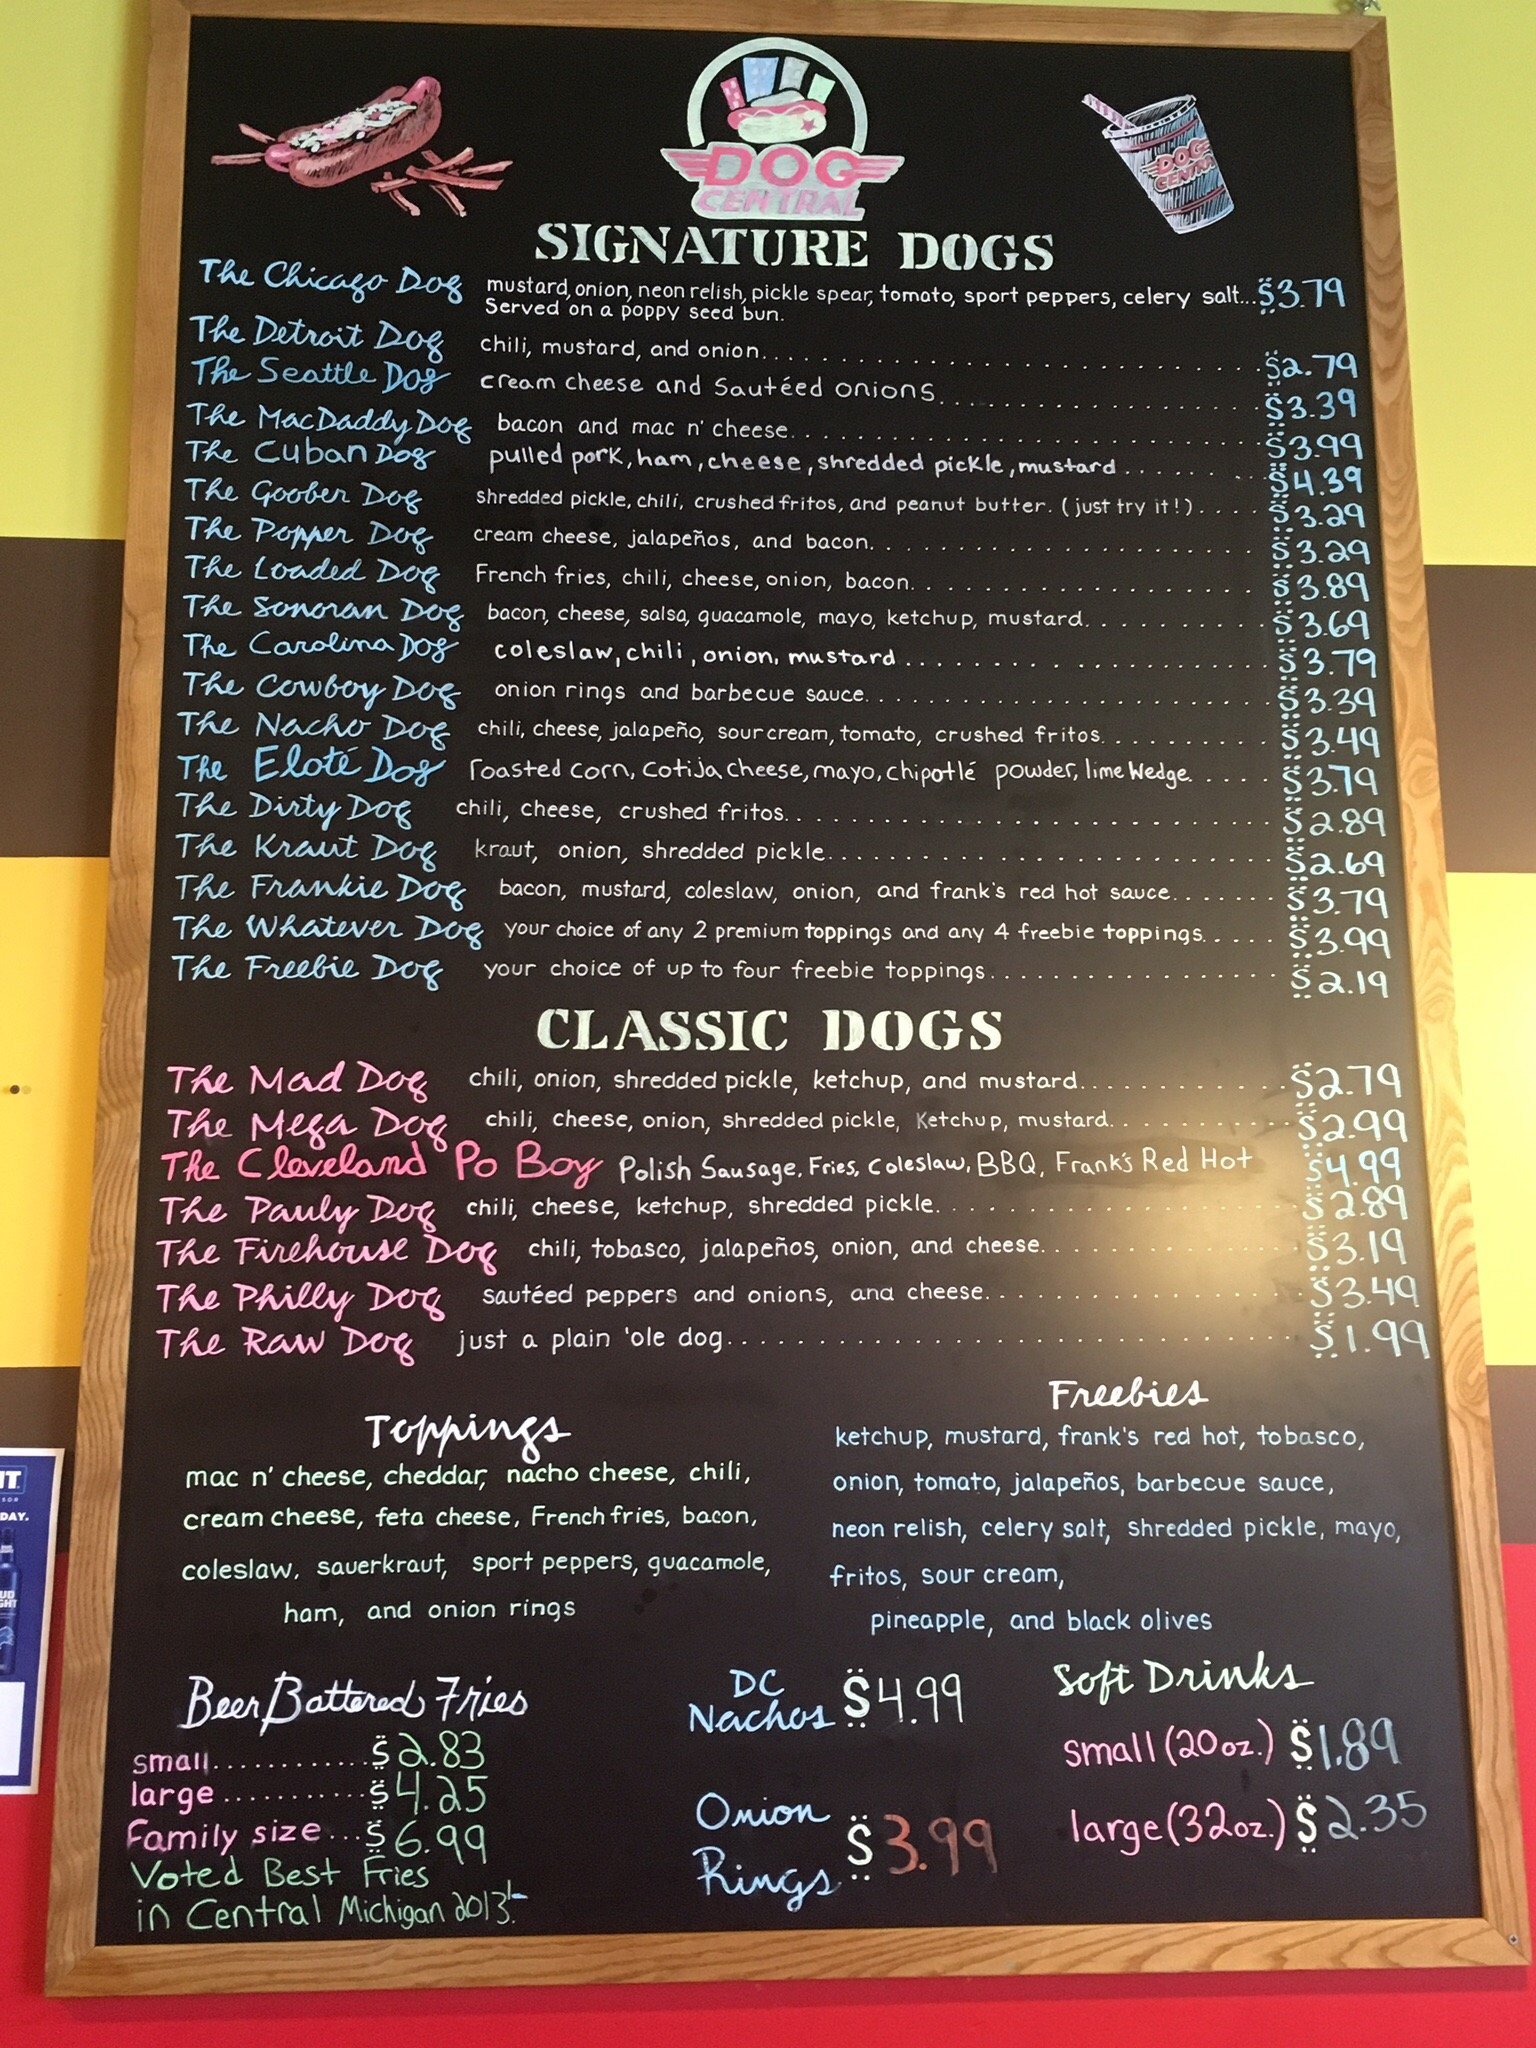 DOG
CENTRAL
DOG
CENTRAL
SIGNATURE DOGS
The Chicago Dog mustard, onion, neon relish, pickle spear, tomato, sport peppers, celery salt...$3.79
Served on a poppy seed bun.
The Detroit Dog chili, mustard, and onion.......$2.79
The Seattle Dog cream cheese and Sautéed onions.......$3.39
The MacDaddy Dog bacon and mac n' cheese.......$3.99
The Cuban Dog pulled pork, ham, cheese, shredded pickle, mustard.......$4.39
The Goober Dog shredded pickle, chili, crushed fritos, and peanut butter. (just try it!).....$3.29
The Popper Dog cream cheese, jalapeños, and bacon.......$3.29
The Loaded Dog French fries, chili, cheese, onion, bacon.......$3.89
The Sonoran Dog bacon, cheese, salsa, guacamole, mayo, ketchup, mustard.......$3.69
The Carolina Dog coleslaw, chili, onion, mustard.......$3.79
The Cowboy Dog onion rings and barbecue sauce.......$3.39
The Nacho Dog chili, cheese, jalapeño, sour cream, tomato, crushed fritos.......$3.49
The Eloté Dog roasted corn, Cotija cheese, mayo, chipotlé powder, lime wedge.....$3.79
The Dirty Dog chili, cheese, crushed fritos.......$2.89
The Kraut Dog kraut, onion, shredded pickle.......$2.69
The Frankie Dog bacon, mustard, coleslaw, onion, and frank's red hot sauce.......$3.79
The Whatever Dog your choice of any 2 premium toppings and any 4 freebie toppings.....$3.99
The Freebie Dog your choice of up to four freebie toppings.......$2.19
CLASSIC DOGS
The Mad Dog chili, onion, shredded pickle, ketchup, and mustard.......$2.79
The Mega Dog chili, cheese, onion, shredded pickle, Ketchup, mustard.......$2.99
The Cleveland Po Boy Polish Sausage, Fries, Coleslaw, BBQ, Frank's Red Hot $4.99
The Pauly Dog chili, cheese, ketchup, shredded pickle.......$2.89
The Firehouse Dog chili, tobasco, jalapeños, onion, and cheese.......$3.19
The Philly Dog sautéed peppers and onions, and cheese.......$3.49
The Raw Dog just a plain 'ole dog.......$1.99
Toppings
mac n' cheese, cheddar, nacho cheese, chili,
cream cheese, feta cheese, French fries, bacon,
coleslaw, sauerkraut, sport peppers, guacamole,
ham, and onion rings
Freebies
ketchup, mustard, frank's red hot, tobasco,
onion, tomato, jalapeños, barbecue sauce,
neon relish, celery salt, shredded pickle, mayo,
fritos, sour cream,
pineapple, and black olives
Beer Battered Fries
small.............$2.83
large...........$4.25
Family size...$6.99
Voted Best Fries
in Central Michigan 2013!
DC
Nachos $4.99
Onion
Rings $3.99
Soft Drinks
small (20oz.) $1.89
large (32oz.) $2.35
DAY.